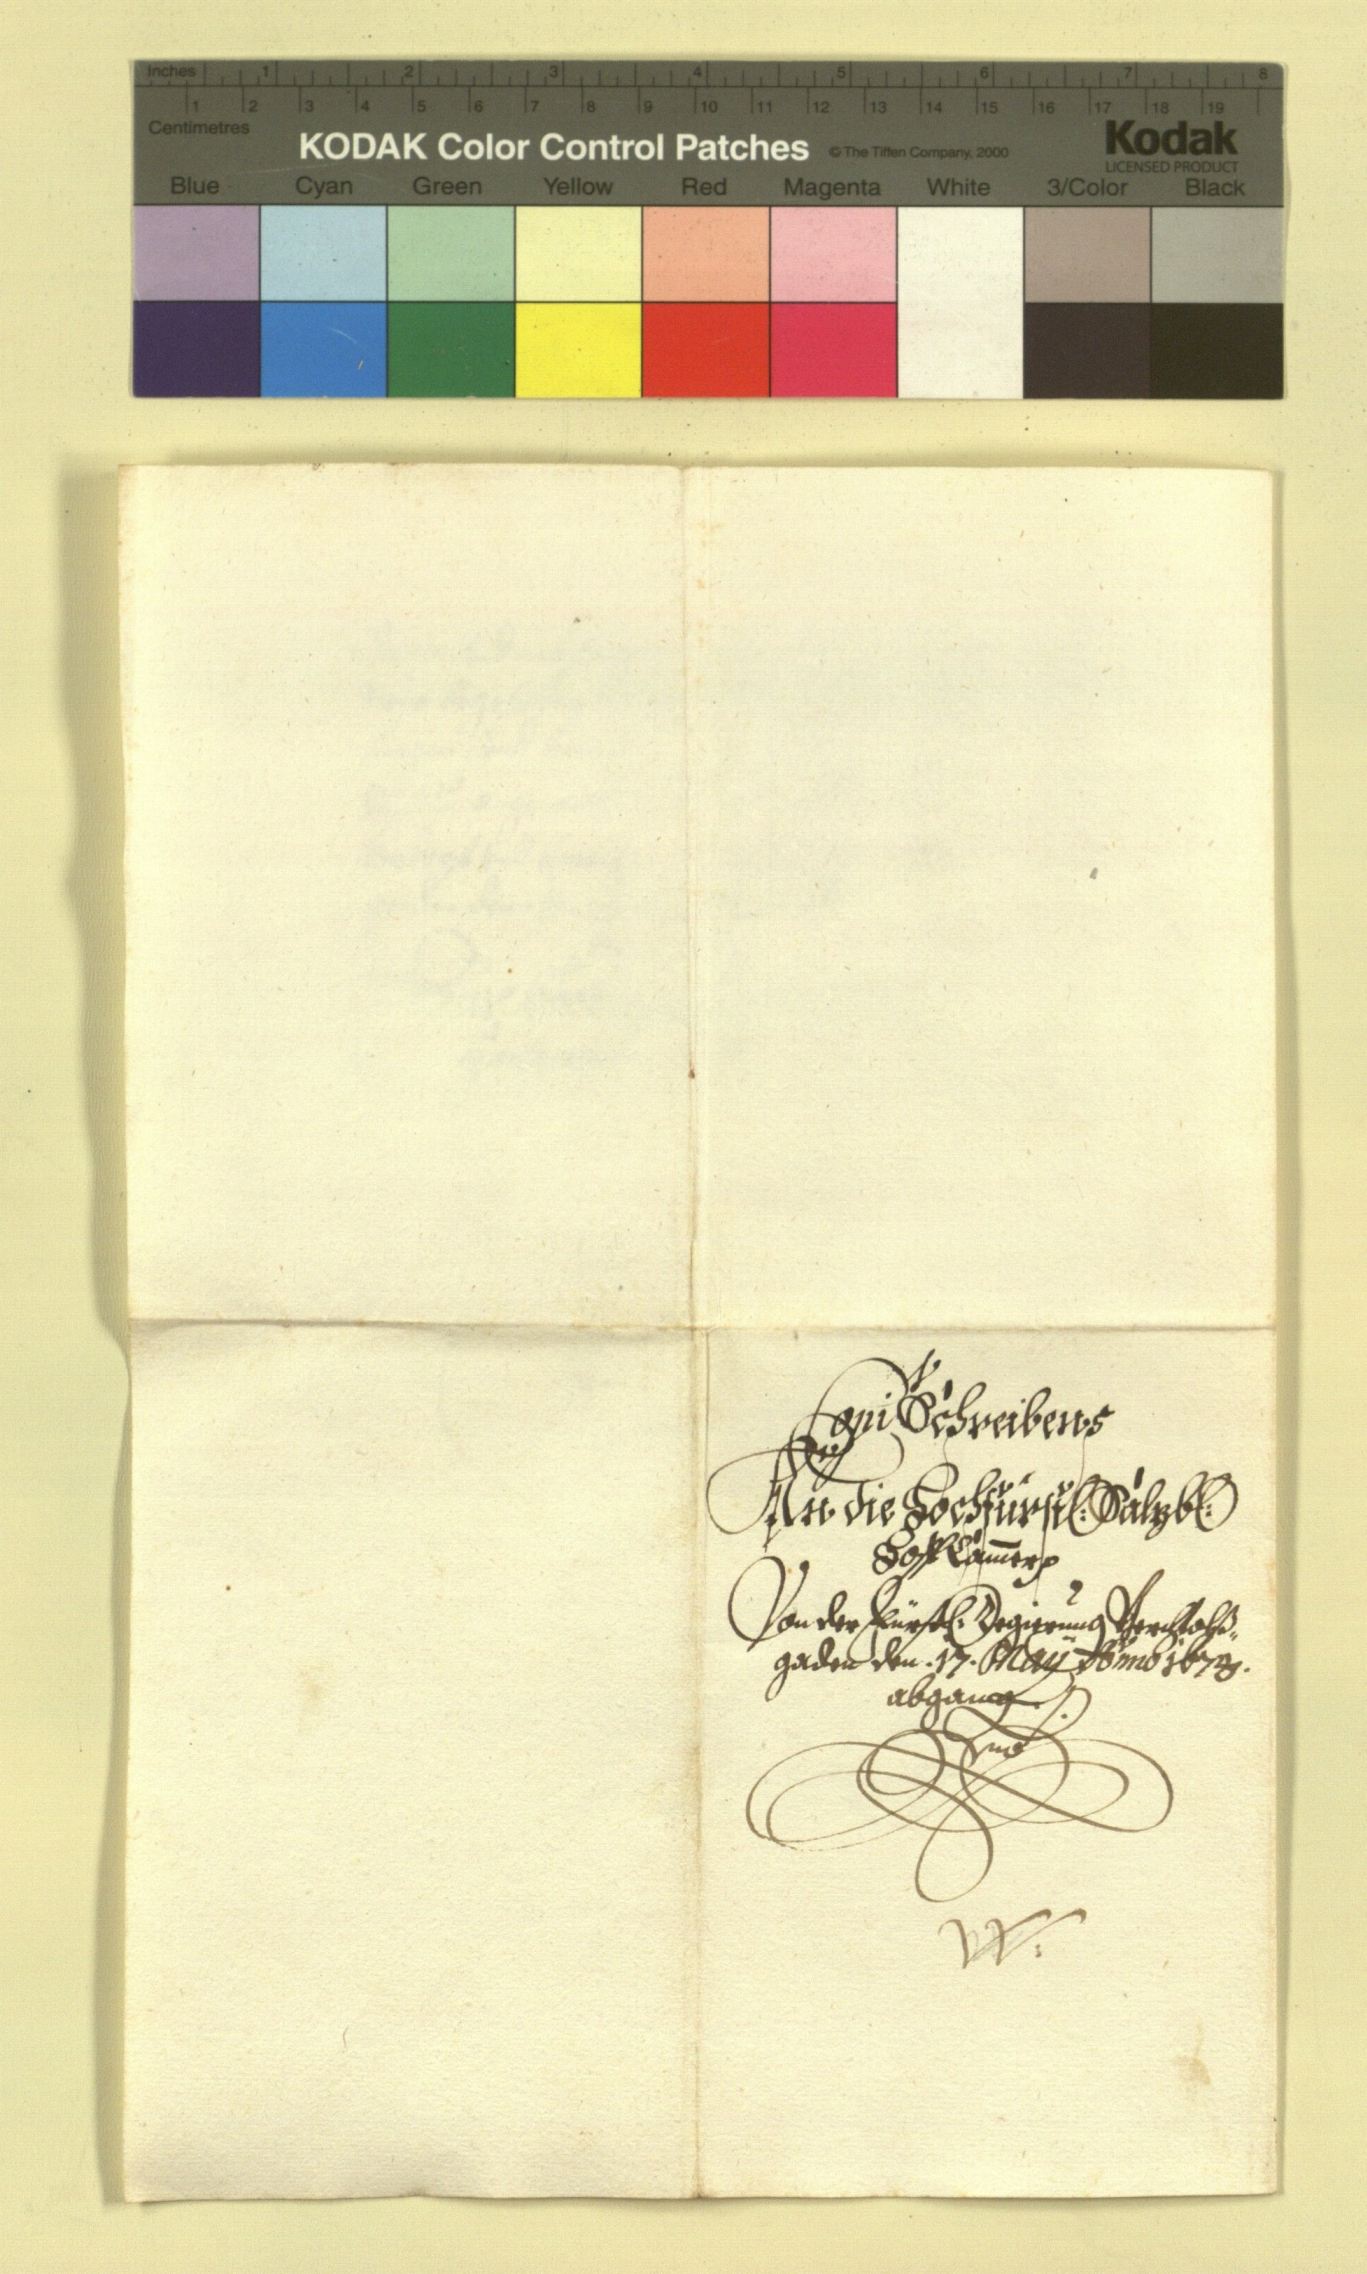 Inches 1 2 3 4 5 6 7 8
1 2 3 4 5 6 7 8 9 10 11 12 13 14 15 16 17 18 19
Centimetres
KODAK Color Control Patches © The Tiffen Company, 2000 Kodak
LICENSED PRODUCT
Blue Cyan Green Yellow Red Magenta White 3/Color Black
Copi Schreibens
An die Hochfürstl: Salzb:
Hof Cam̄er
Von der Fürstl: Regierung Berchtols-
gaden den 17. May Anno
abgang.